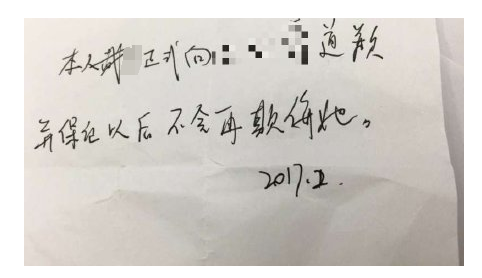 本人正式向道歉
并保证以后不会再欺侮她。
2017.2.